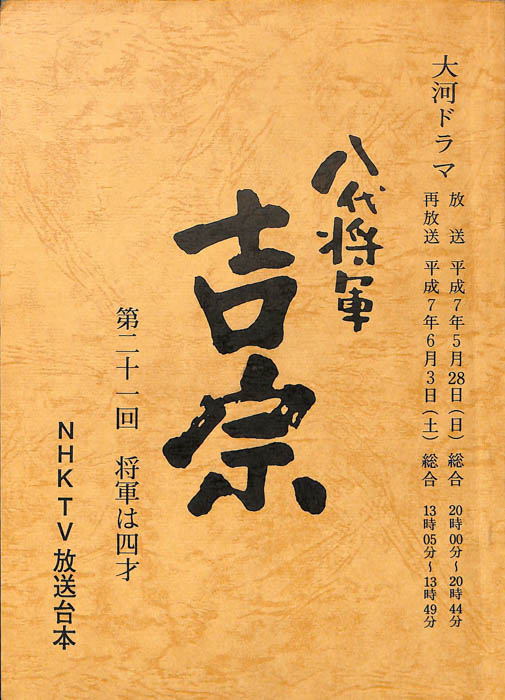 大河ドラマ
放送 平成7年5月28日(日) 総合 20時00分~20時44分
再放送 平成7年6月3日(土) 総合 13時05分~13時49分
八代将軍
吉宗
第二十一回 将軍は四才
NHK TV 放送台本